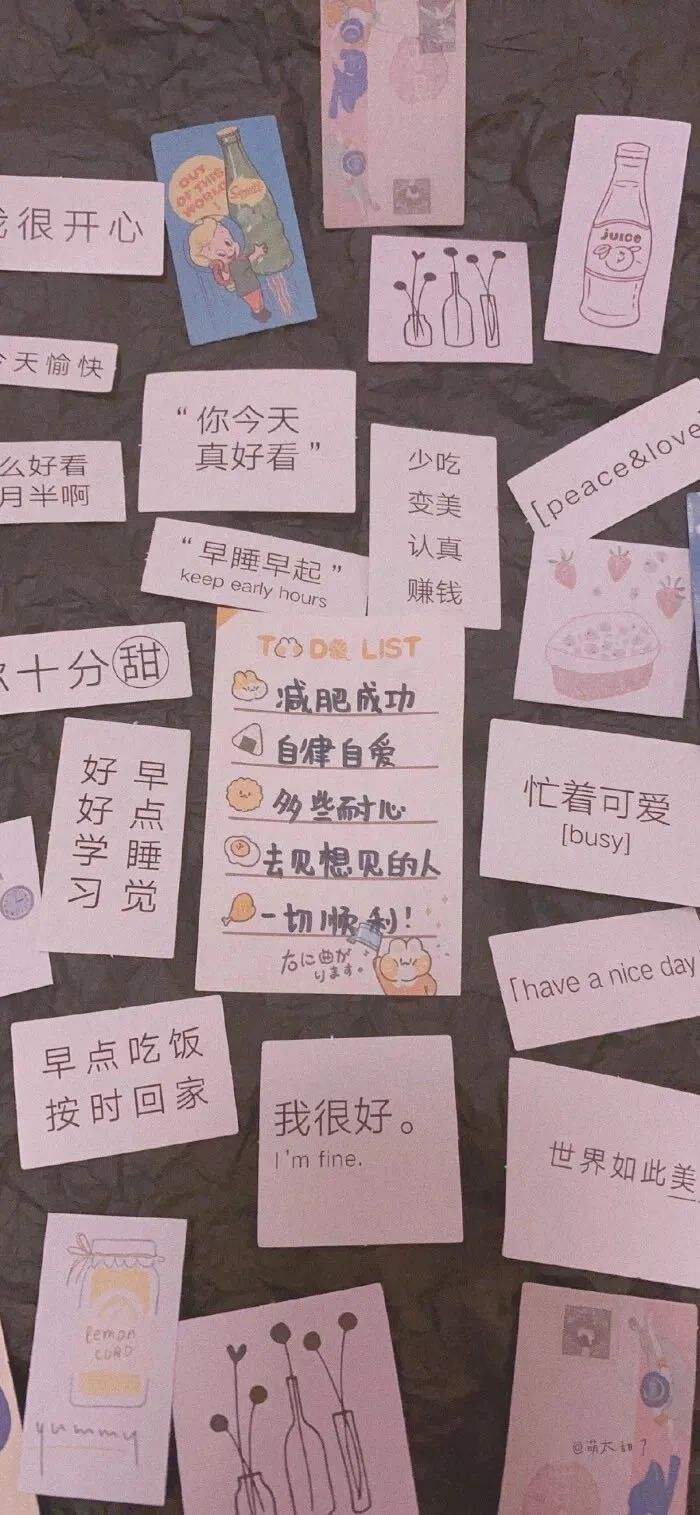 OUT
OF THIS
WORLD!
juice
我很开心
今天愉快
“你今天
真好看”
么好看
月半啊
少吃
变美
认真
赚钱
[peace&love
“早睡早起”
keep early hours
十分甜
TO DO LIST
减肥成功
自律自爱
多些耐心
去见想见的人
一切顺利!
右に曲が
ります。
早点睡觉
好好学习
忙着可爱
[busy]
「have a nice day
早点吃饭
按时回家
我很好。
I'm fine.
世界如此美
lemon
CURD
yummy